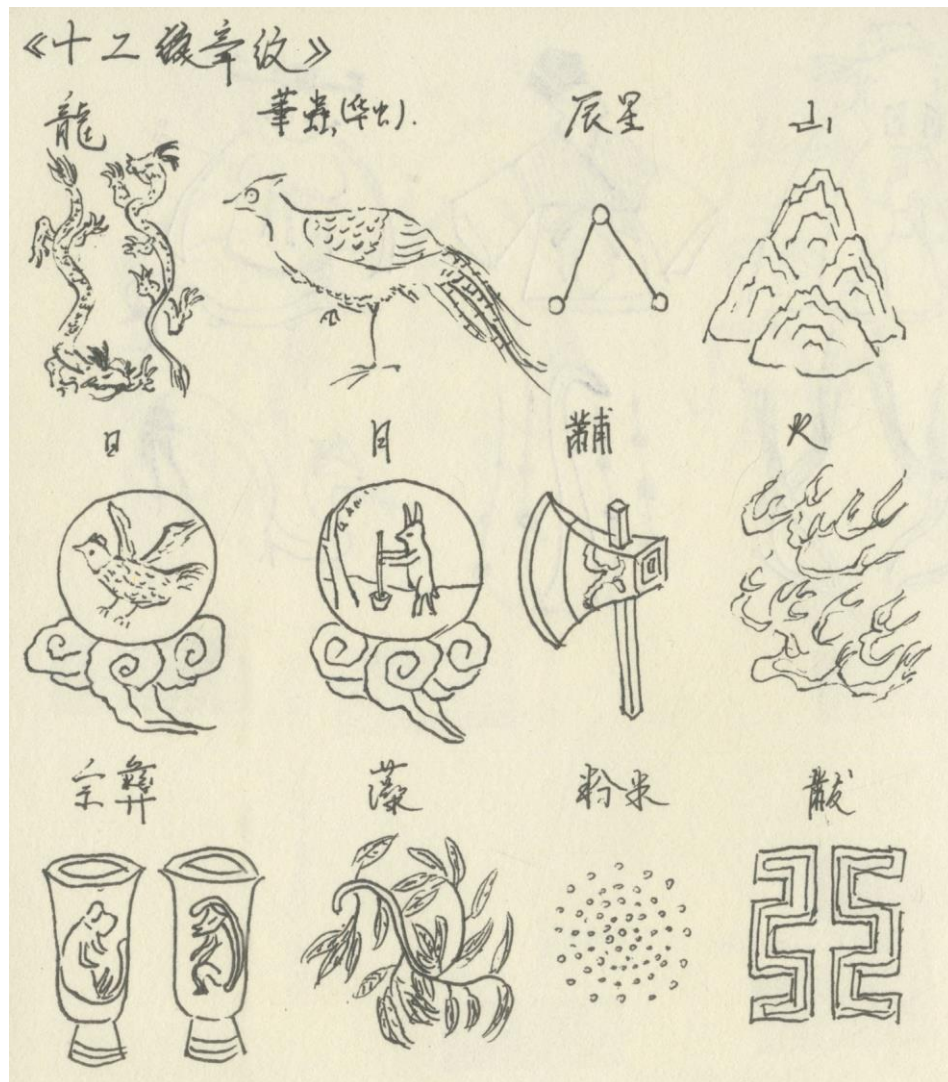 《十二章纹》
龍 華蟲(华虫). 辰星 山
日 月 黼 火
宗彝 藻 粉米 黻